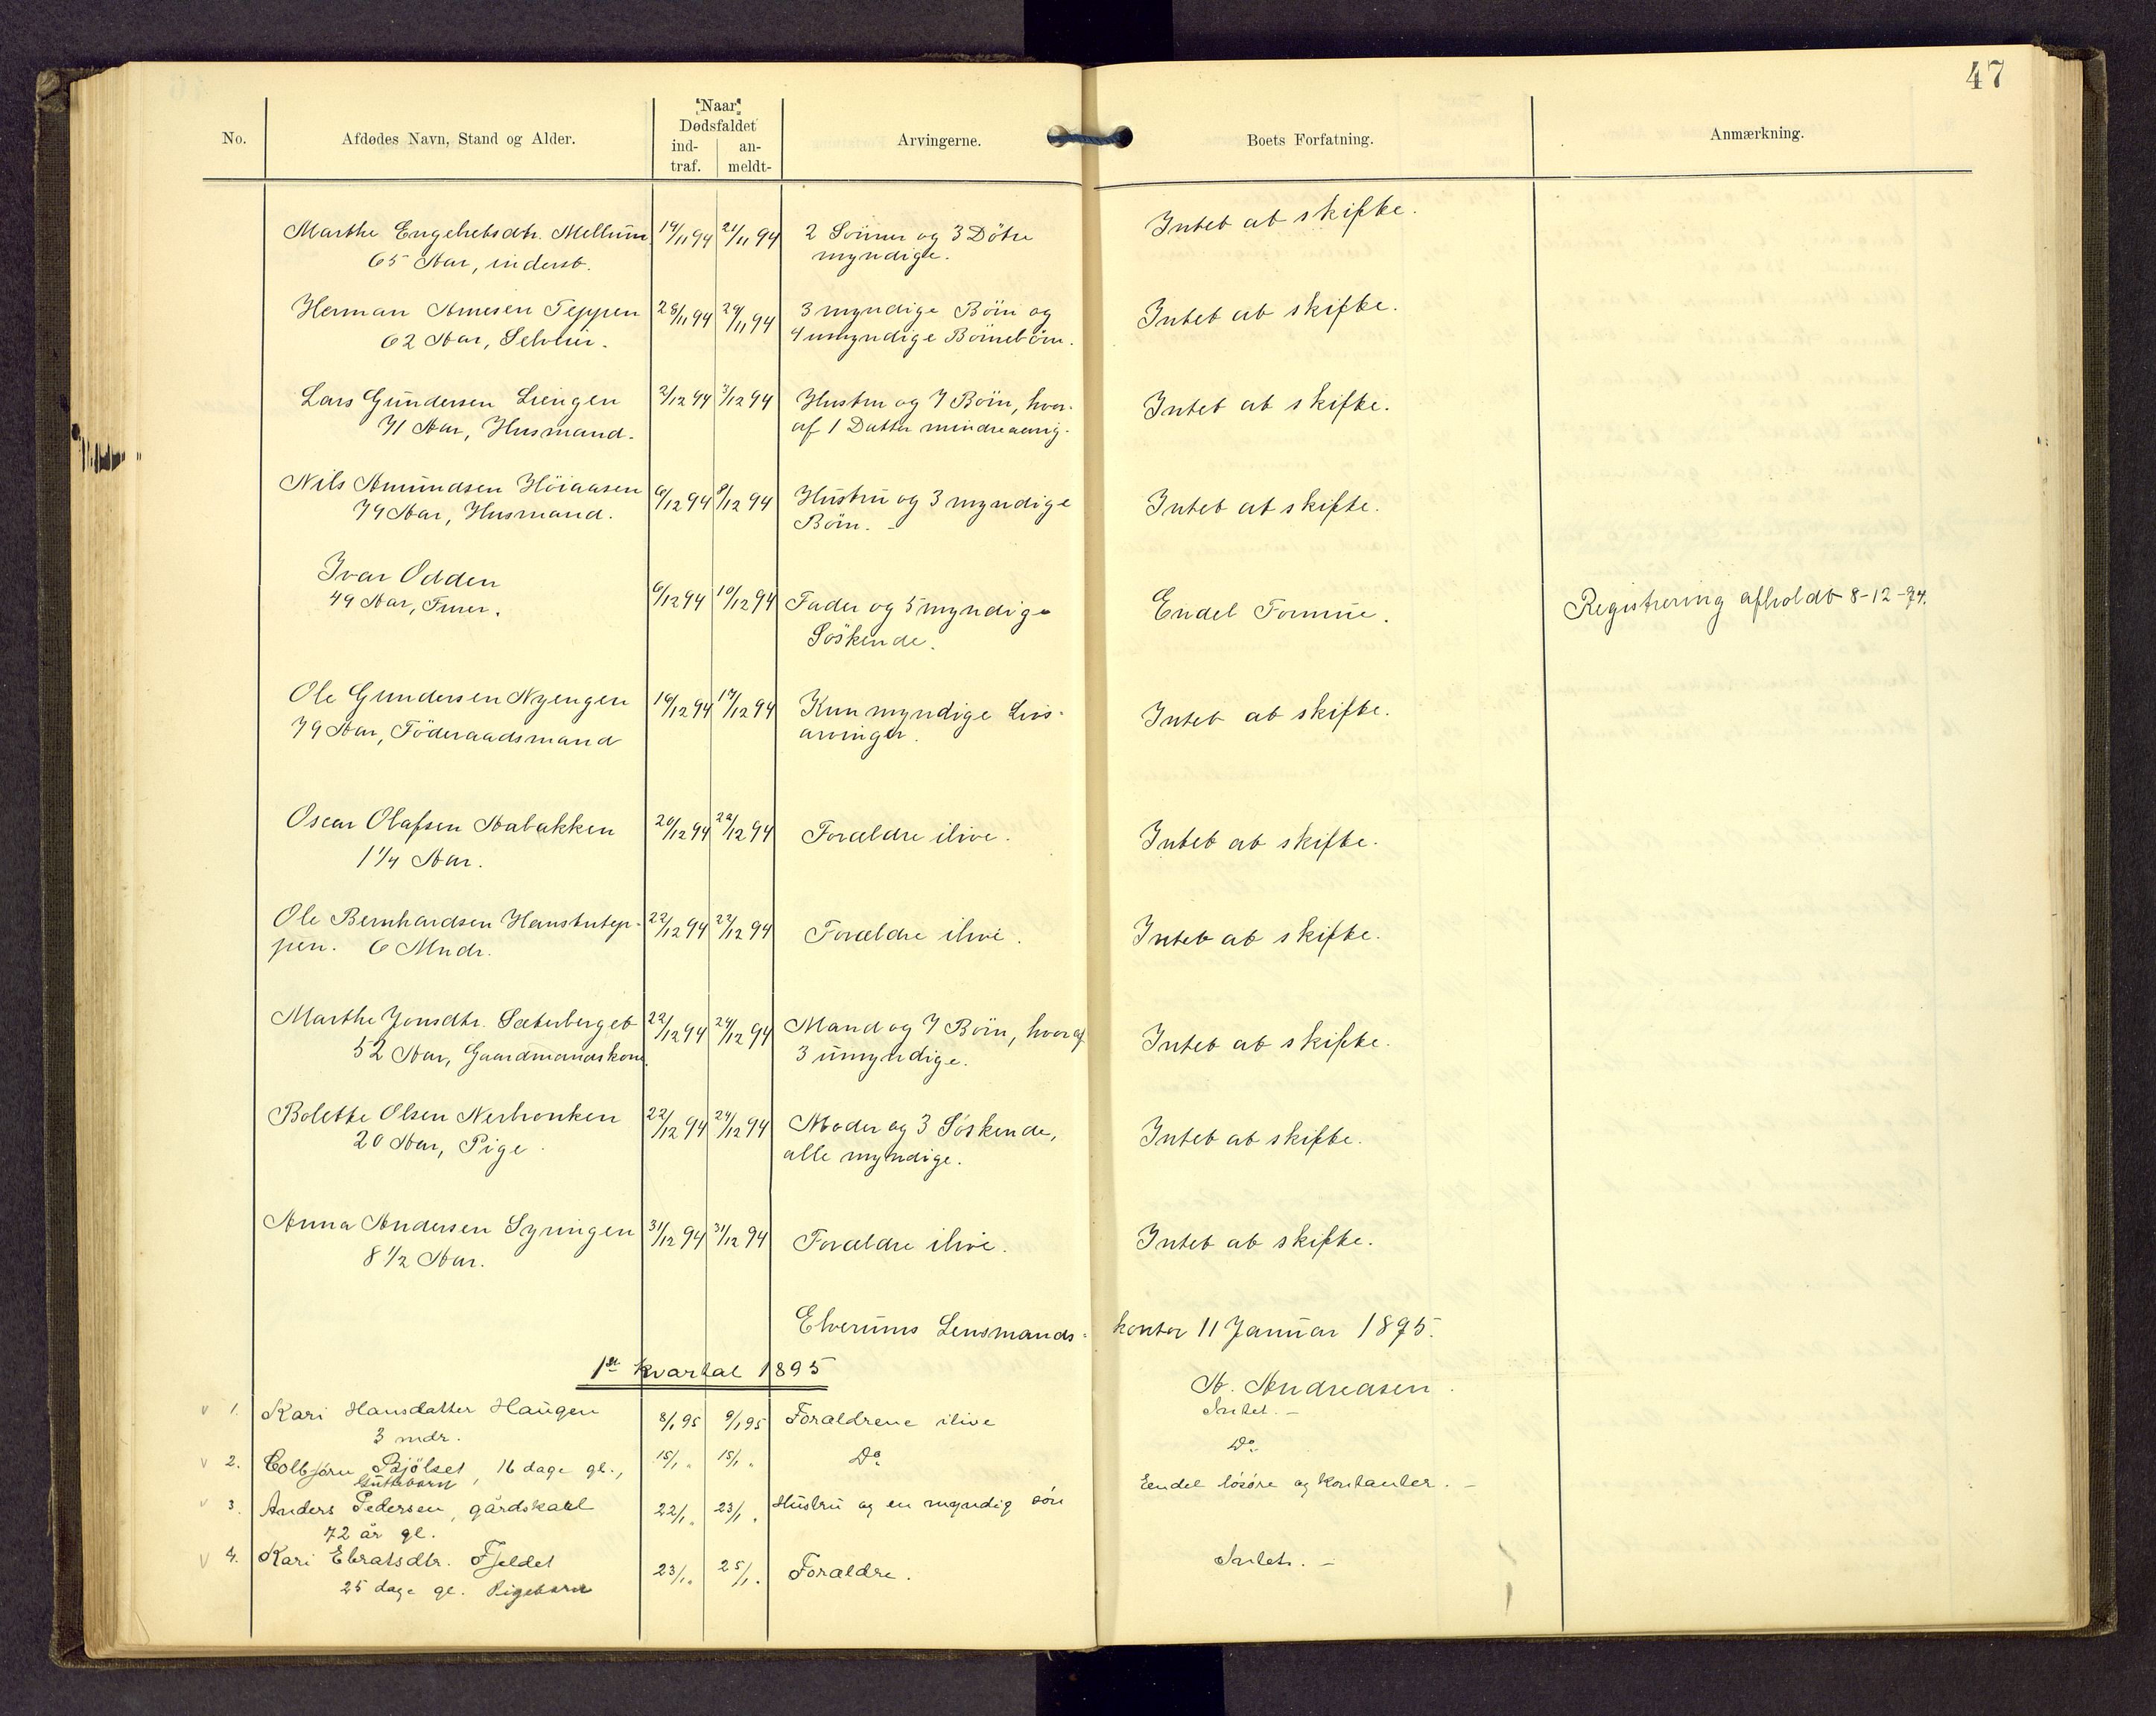 47
No. Afdødes Navn, Stand og Alder. "Naar" Dødsfaldet indtraf. anmeldt- Arvingerne. Boets Forfatning. Anmærkning.
Marthe Engebretsdtr. Mellum 19/11 94 21/11 94 2 Sönner og 3 Dötre Intet at skifte.
65 Aar, inderst. myndige.
Herman Arnesen Teppen 28/11 94 29/11 94 3 myndige Börn og Intet at skifte.
62 Aar, Selveier. 4 umyndige Börnebörn.
Lars Gundersen Liengen 2/12 94 3/12 94 Hustru og 7 Börn, hvor- Intet at skifte.
71 Aar, Husmand. af 1 Datter mindreaarig.
Nils Amundsen Höiaasen 6/12 94 8/12 94 Hustru og 3 myndige Intet at skifte.
79 Aar, Husmand. Börn. -
Ivar Odden 6/12 94 10/12 94 Fader og 5 myndige Endel Formue. Registrering afholdt 8-12-94.
49 Aar, Furer. Söskende.
Ole Gundersen Nyengen 16/12 94 17/12 94 Kun myndige Livs- Intet at skifte.
79 Aar, Föderaadsmand arvinger.
Oscar Olafsen Aabakken 20/12 94 22/12 94 Forældre ilive. Intet at skifte.
1 1/4 Aar.
Ole Bernhardsen Hanstutep- 22/12 94 22/12 94 Forældre ilive. Intet at skifte.
pen. 6 Mndr.
Marthe Jonsdtr. Sæterberget 22/12 94 24/12 94 Mand og 7 Börn, hvoraf Intet at skifte.
52 Aar, Gaardmandskone. 3 umyndige.
Bolette Olsen Nerhonken 22/12 94 24/12 94 Moder og 3 Söskende, Intet at skifte.
20 Aar, Pige. alle myndige.
Anna Andersen Syringen 31/12 94 31/12 94 Forældre ilive. Intet at skifte.
8 1/2 Aar.
Elverums Lensmands- kontor 11 Januar 1895.
A. Andreasen.
1ste kvartal 1895
1. Kari Hansdatter Haugen 8/1 95 9/1 95 Forældrene ilive Intet. -
3 mdr.
2. Colbjörn Bjölset, 16 dage gl., 15/1 " 15/1 " Do. Do.
Guttebarn
3. Anders Pedersen, gårdskarl 22/1 " 23/1 " Hustru og en myndig sön Eendel lösöre og kontanter. -
72 år gl.
4. Kari Ebratsdtr. Fjeldet 23/1 " 25/1 " Forældre. Intet. -
25 dage gl. Pigebarn